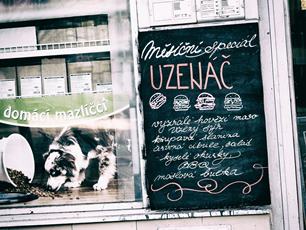 domácí mazlíčci
Měsíční speciál
UZENÁČ
vyzrálé hovězí maso
uzený sýr
křupavá slanina
červená cibule, salad
kyselé okurky
BBQ
máslová bulka